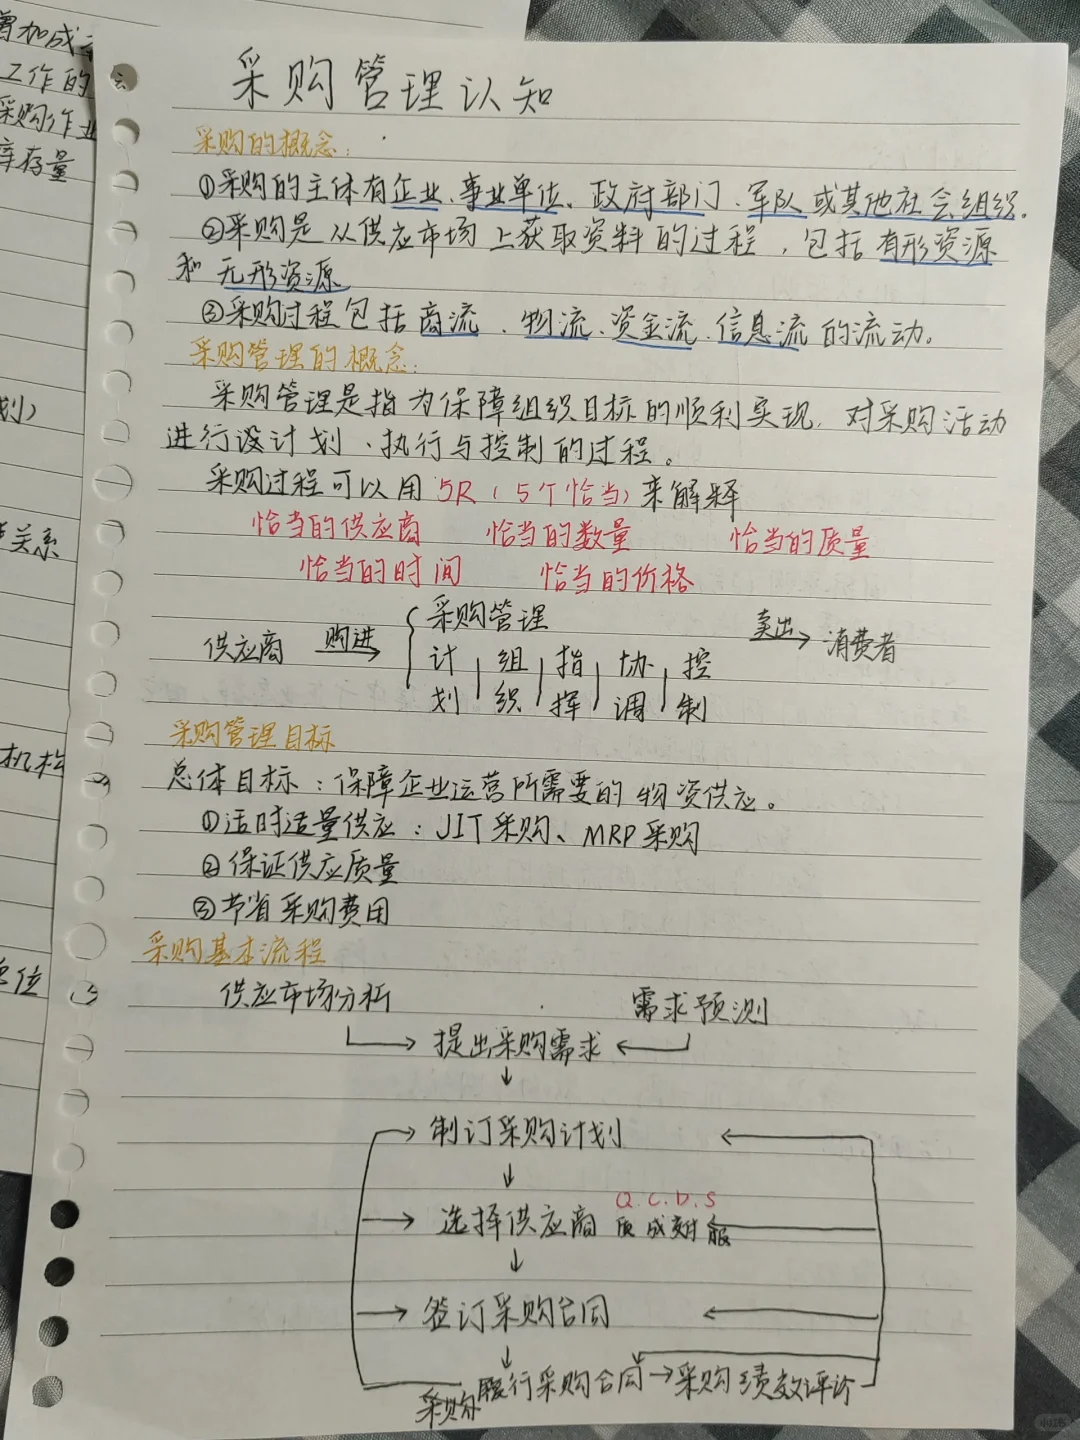 采购管理认知
采购的概念：
①采购的主体有企业、事业单位、政府部门、军队或其他社会组织。
②采购是从供应市场上获取资料的过程，包括有形资源
和无形资源
③采购过程包括商流、物流、资金流、信息流的流动。
采购管理的概念：
采购管理是指为保障组织目标的顺利实现，对采购活动
进行设计划、执行与控制的过程。
采购过程可以用5R（5个恰当）来解释
恰当的供应商 恰当的数量 恰当的质量
恰当的时间 恰当的价格
供应商 购进 采购管理 卖出 消费者
计划 组织 指挥 协调 控制
采购管理目标
总体目标：保障企业运营所需要的物资供应。
①适时适量供应：JIT采购、MRP采购
②保证供应质量
③节省采购费用
采购基本流程
供应市场分析 需求预测
提出采购需求
制订采购计划
Q.C.D.S
选择供应商 质 成 交付 服
签订采购合同
履行采购合同→采购绩效评价
采购
增加成
工作的
采购作业
库存量
划）
关系
机构
单位